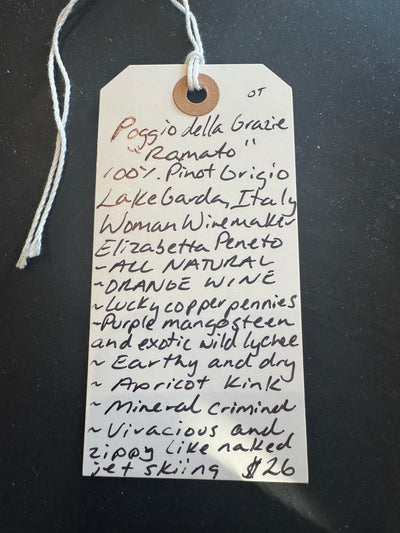 OT
Poggio della Grazie
"Ramato"
100% Pinot Grigio
Lake Garda, Italy
Woman Winemaker
Elizabetta Peneto
~ALL NATURAL
~ORANGE WINE
~Lucky copper pennies
~Purple mangosteen
and exotic wild lychee
~ Earthy and dry
~ Apricot Kink
~ Mineral Criminal
~ Vivacious and
zippy like naked
jet skiing $26